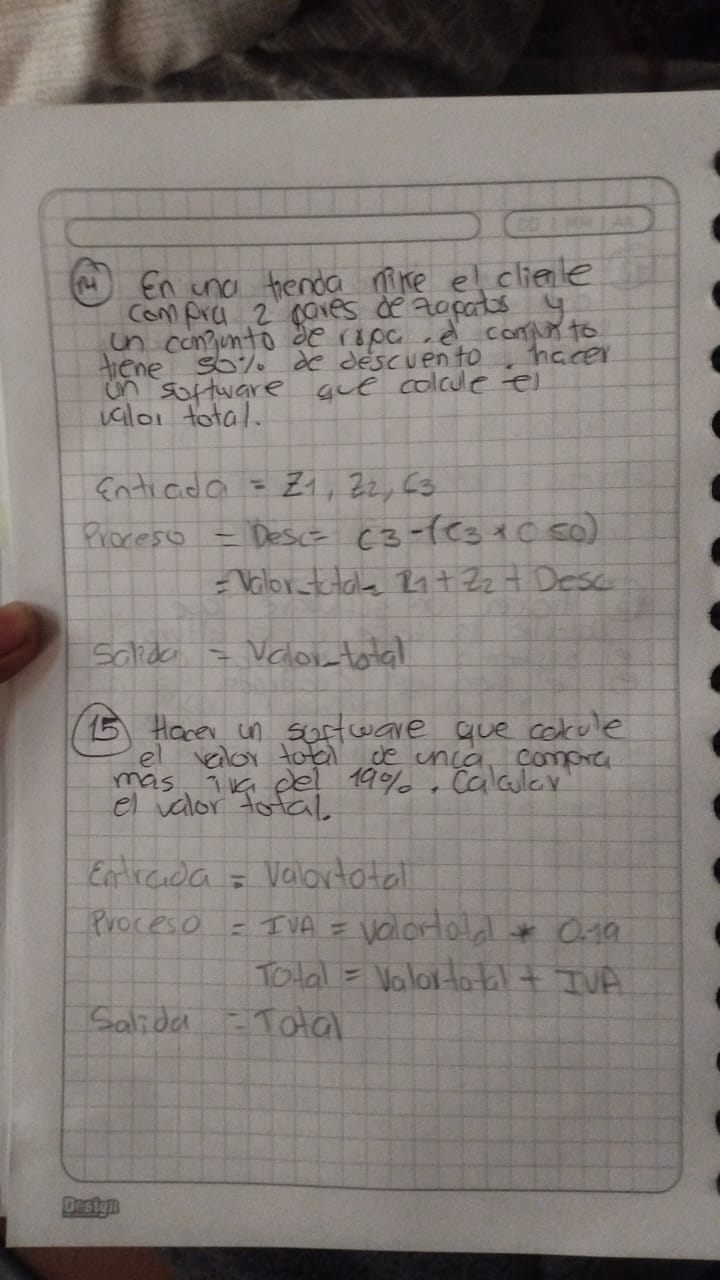 14 En una tienda nike el cliente
compra 2 pares de zapatos y
un conjunto de ropa. el conjunto
tiene 50% de descuento. hacer
un software que calcule el
valor total.
Entrada = Z1, Z2, C3
Proceso = Desc= C3-(C3 x 0.50)
=Valor_total= Z1 + Z2 + Desc
Salida = Valor_total
15 Hacer un software que calcule
el valor total de unca compra
mas iva del 19%. Calcular
el valor total.
Entrada = Valortotal
Proceso = IVA = Valortotal * 0.19
Total = Valortotal + IVA
Salida = Total
Design